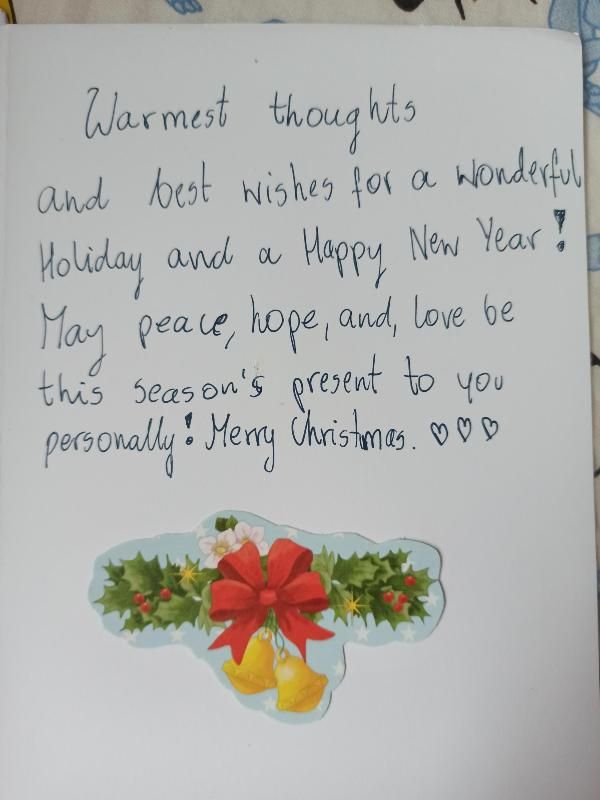 Warmest thoughts
and best wishes for a wonderful
Holiday and a Happy New Year!
May peace, hope, and, love be
this season's present to you
personally! Merry Christmas. ♡♡♡